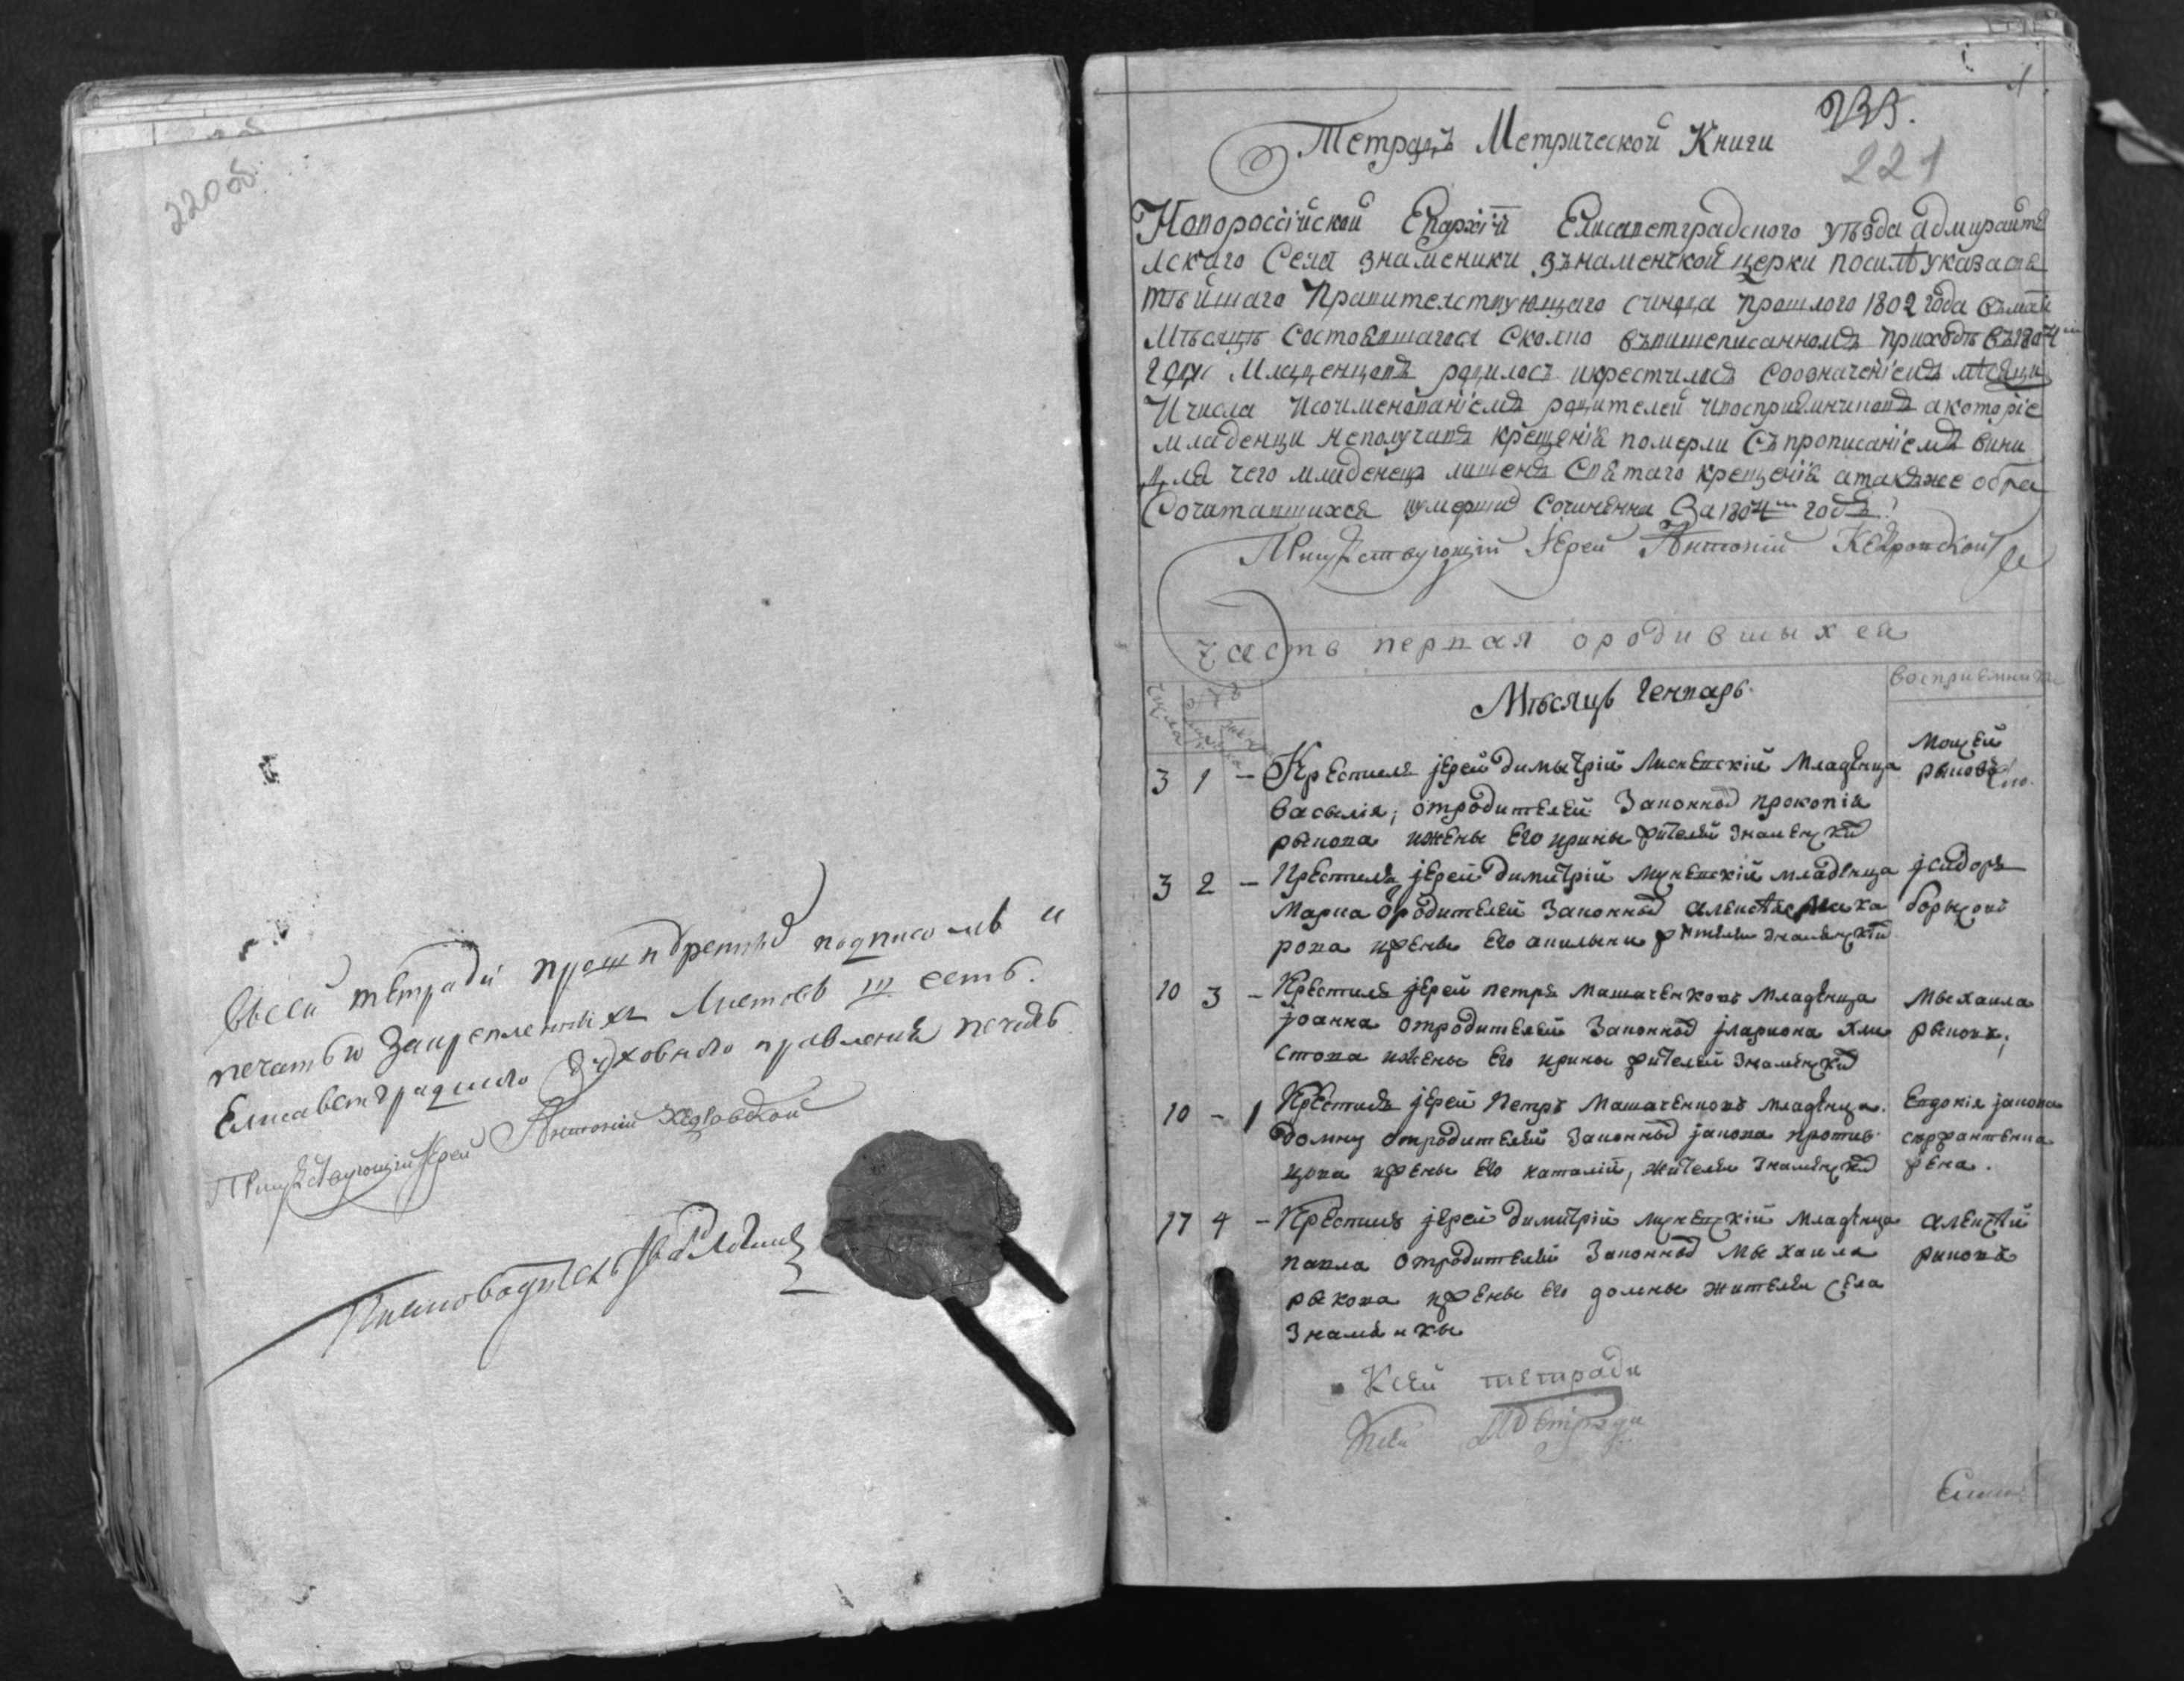 220об.
Всей тетради прошнбретнѡ подписомъ и
печатью закрепленныхъ Листовъ III есть.
Елисаветградшого Духовного правления печать
Присудствующій Іерей Антоній Кедровской
Писмоводитель
1
233.
221
Тетрадь Метрической Книги
Новороссійской Епархіи Елисаветградсного уѣзда адмиралте
лскаго Села знаменики зънаменской церкви посилѣ указа свя
тѣйшаго Правителствующаго Синода прошлого 1802 года въ маѣ
Мѣсяцѣ Состоявшагося Сколко въвишеписанномъ приходѣ въ 1804м
Году Младенцовъ родилось икрестилось Соозначеніемъ мѣсяци
Ичисла Исоименованіемъ родителей ивоспріемниковъ акоторіе
младенци неполучивъ крещенія померли Съ прописаніемъ вини
для чего младенецъ лишенъ Святаго крещенія атакъже о бра
Сочитавшихся иумерших Сочиненна За 1804м годъ:
Присудствующій Іерей Антоній Кедровской
Часть первая ородившыхся
числа
Мѣсяцъ Генваръ.
Восприемники
3 1 – Крестилъ јерей Димытрій Младенца
Васылія, отродителей Законных прокопія
рыкова ижены Его ирины жителей Знаменских
Моисей
рыковъ
3 2 – Крестилъ јерей Димитрій младенца
Марка отродителей Законных алексѣя Заха
рова ижены Его акилыни жителей знаменских
јсидоръ
борысовъ
10 3 – Крестилъ јерей петръ Машаченковъ младенца
јоанна отродителей Законных јлариона хли
стова ижены Его ирины жителей Знаменских
Мыхаила
рыковъ,
10 – 1 Крестилъ јерей Петръ Машаченковъ младенца
домну отродителей Законных јакова против
цова ижены Его наталіи, жителей Знаменских
Евдокія јакова
сержантенка
жена.
17 4 – Крестилъ јерей димитрій младенца
павла отродителей Законных Мыхаила
рыкова ижены Его домны жителей села
Знаменкы
алексѣй
риковъ
Ксей тетради
Ксей тетради